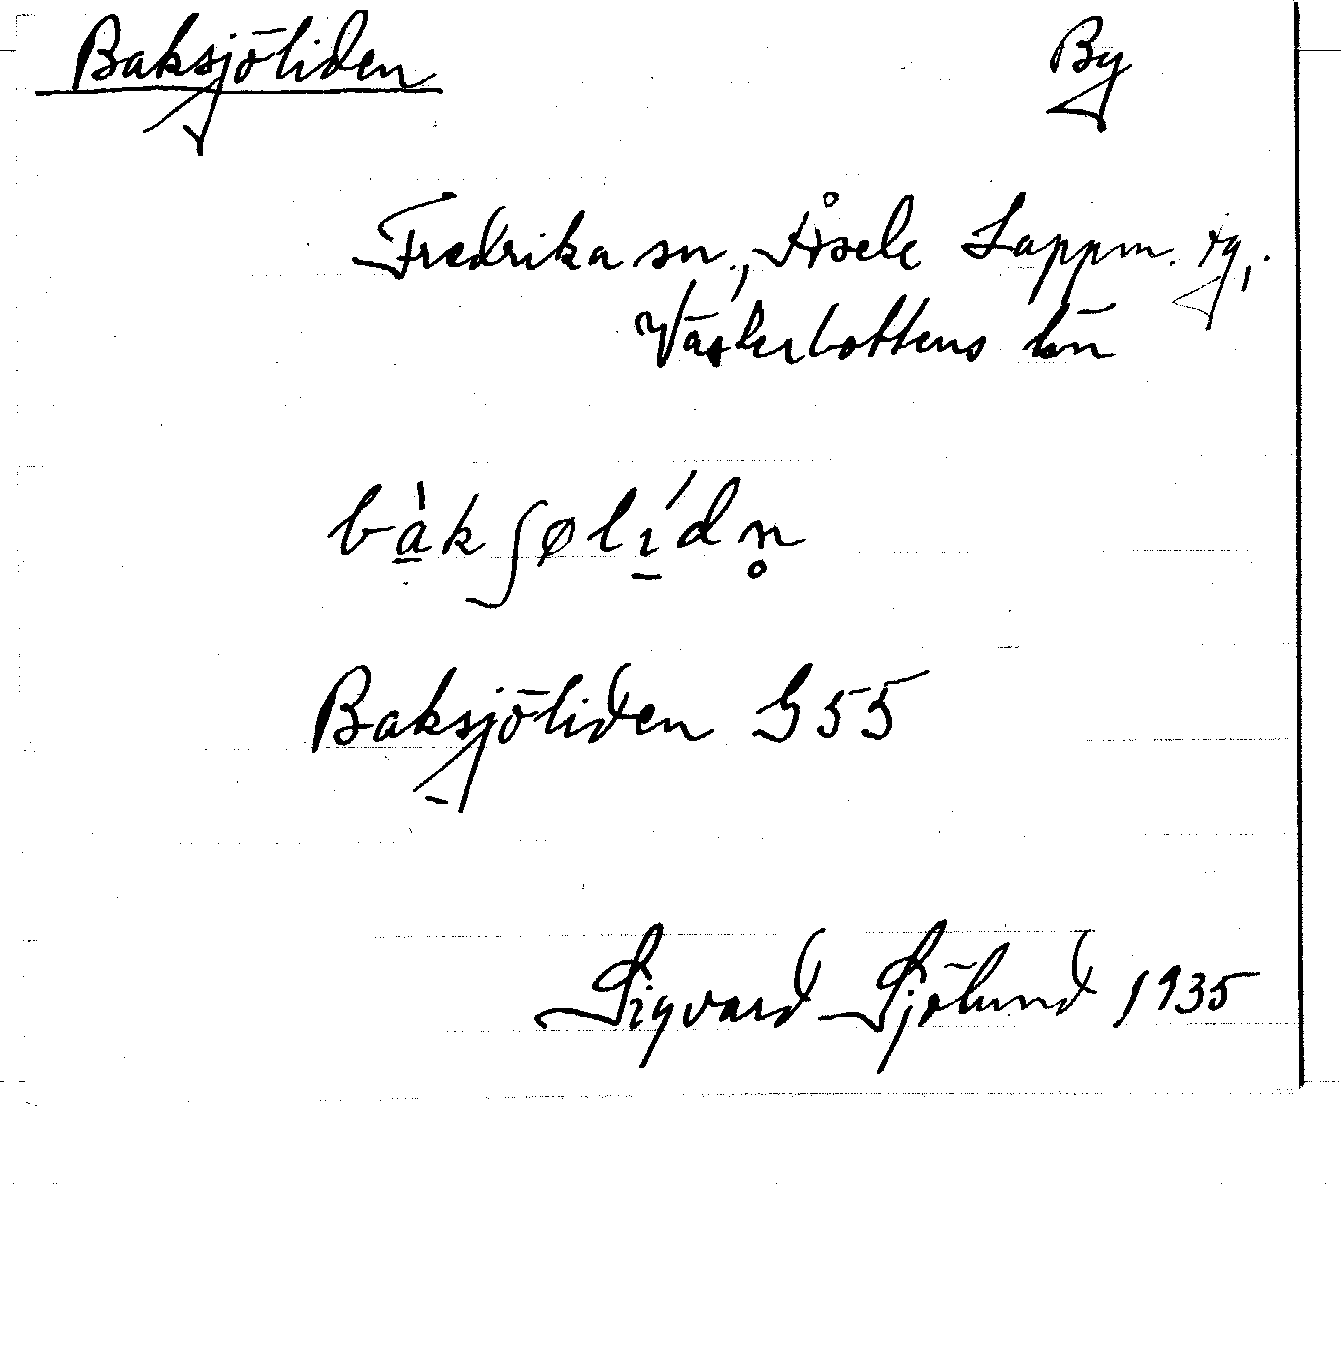 Baksjöliden By
Fredrika sn., Åsele Lappm. tg,.
Västerbottens län
bà̱kʃølí̱dn̥
Baksjöliden G55
Sigvard Sjölund 1935